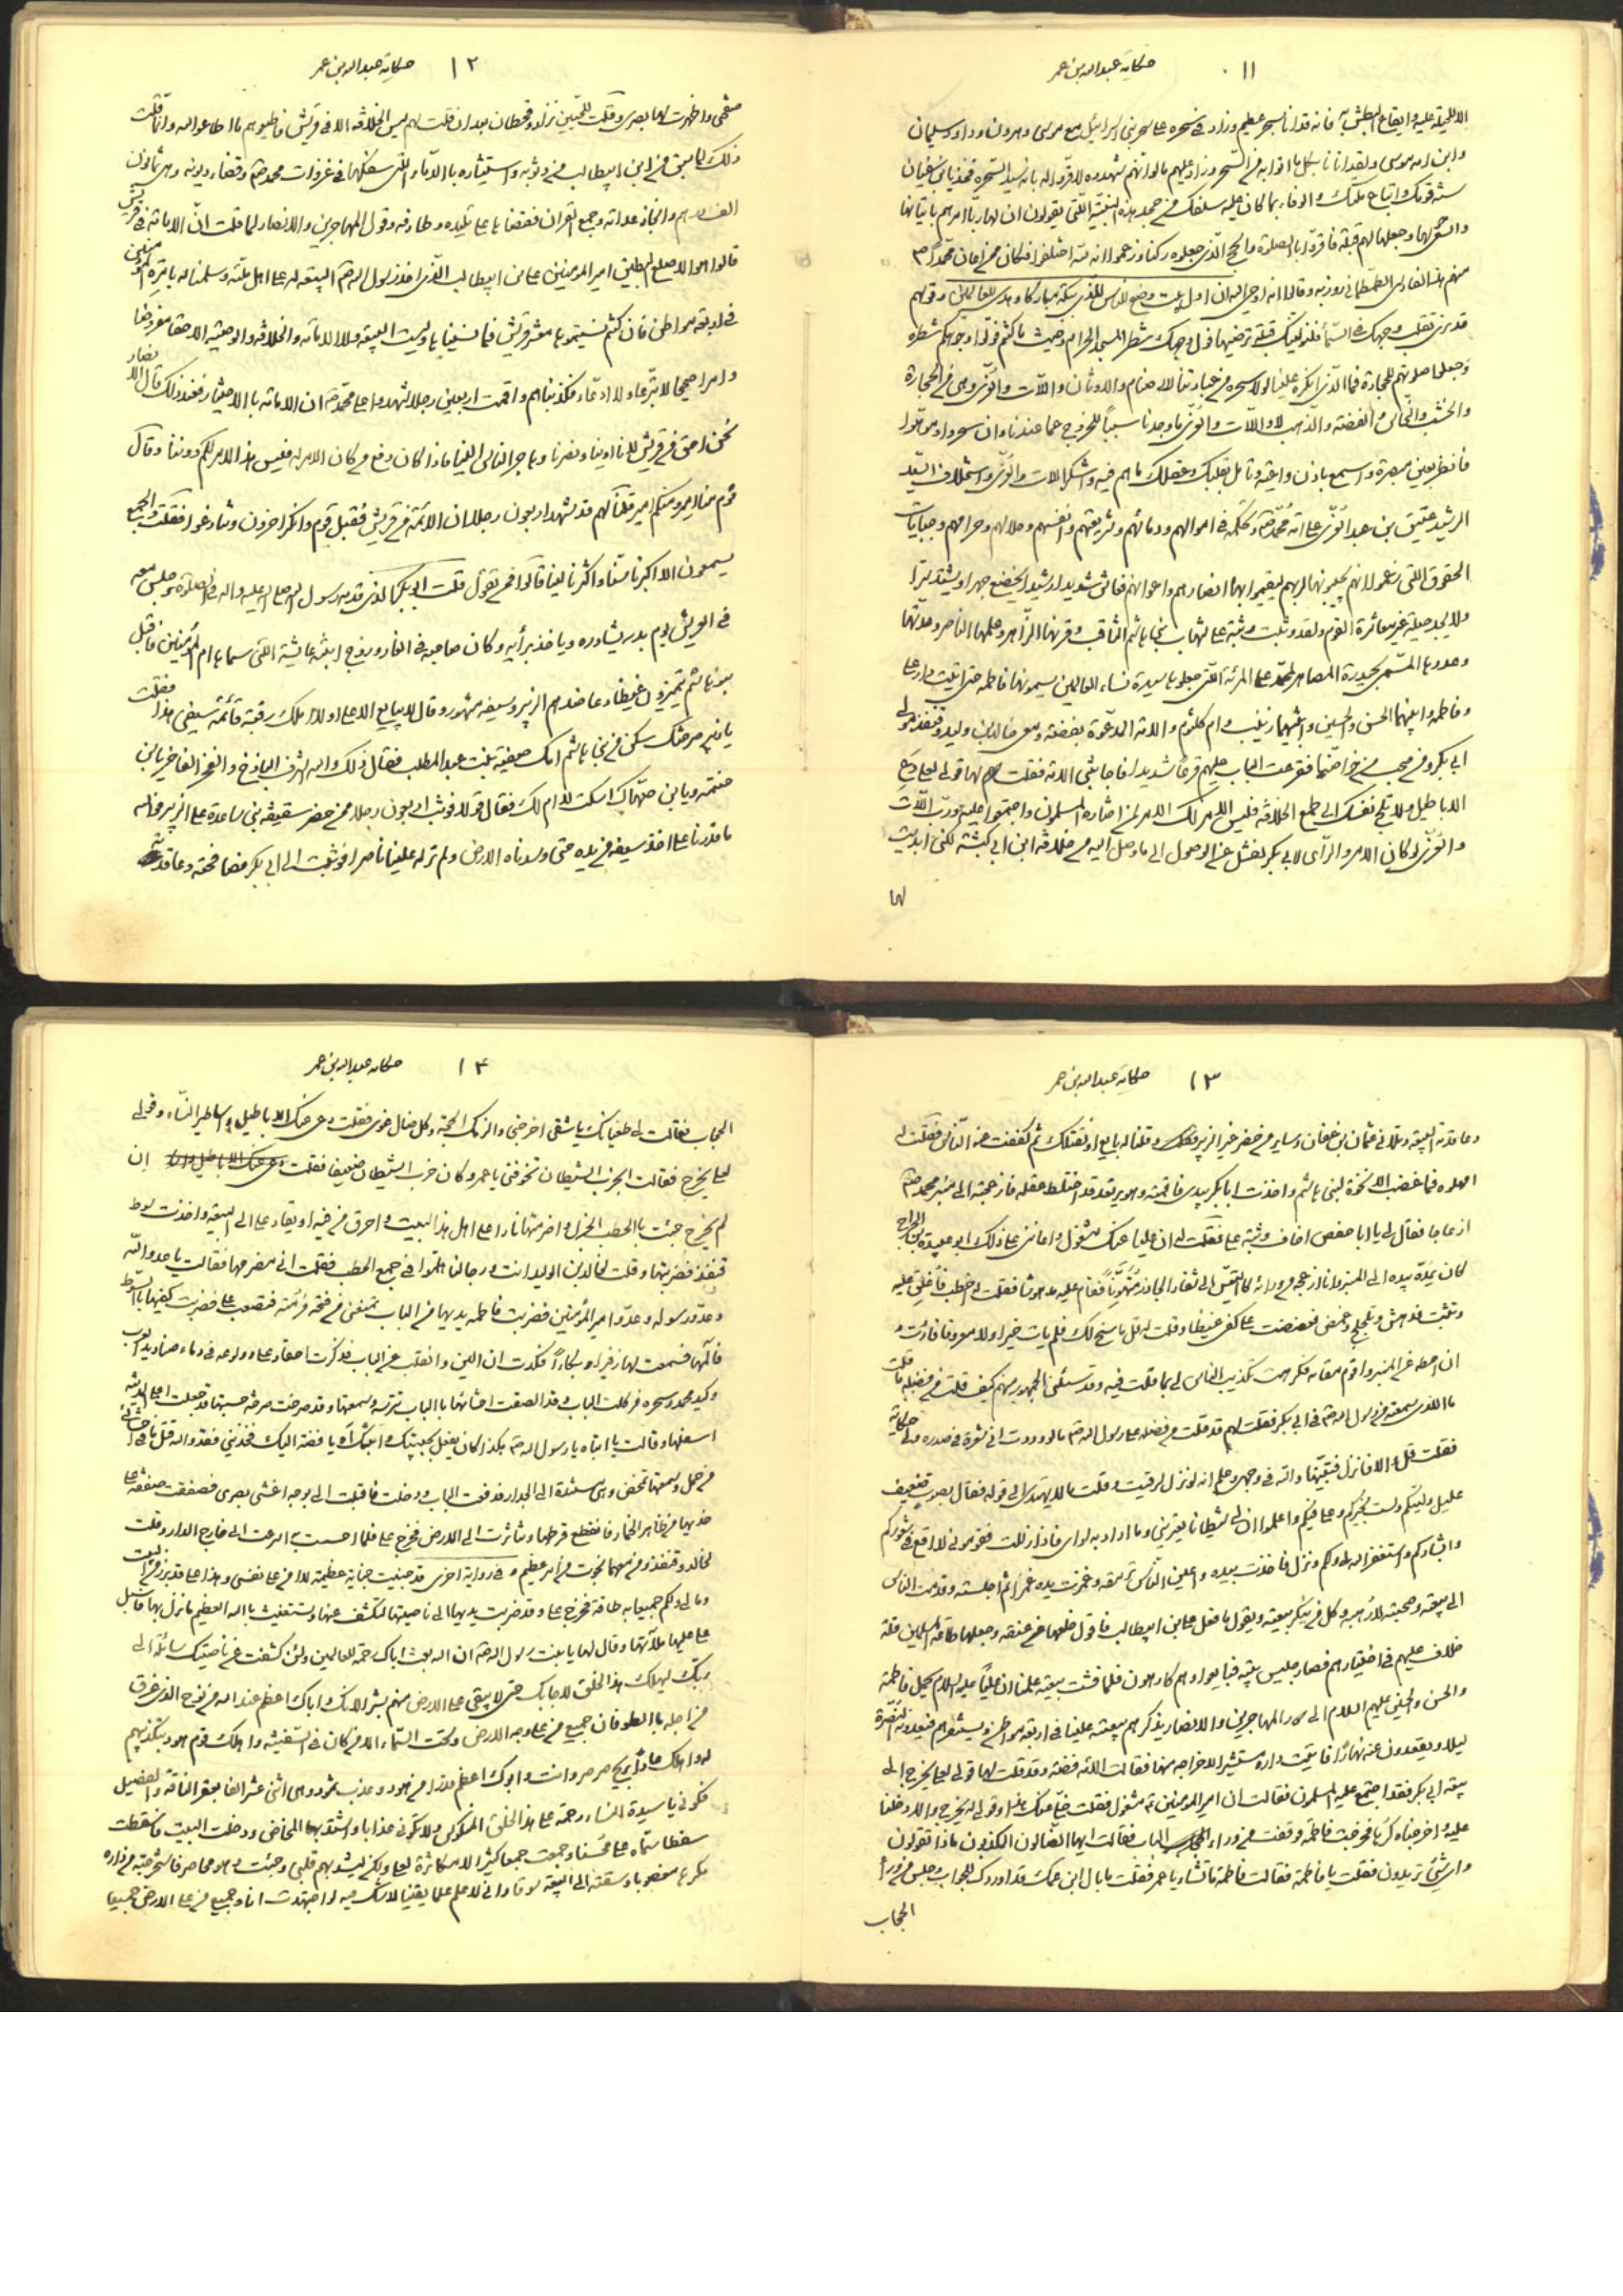 ١١ حکایة عبدالله بن عمر
الا بالحیلة علیه وایقاع البطش به فانه قد اتانا بسحر عظیم وزاد فی سحره علی سحر بنی اسرائیل مع موسی وهرون وداود وسلیمان
وابن امه عیسی ولقد اتانا بکل ما اتوا به من السحر وزاد علیهم ما لو انهم شهدوه لاقروا له بانه سید السحرة فخذ یابن ابی سفیان
سنة قومک واتباع ملتک والوفاء بما کان علیه سلفک من جحد هذه البنیة التی یقولون ان لها ربا امرهم باتیانها
والسعی لها وجعلها لهم قبلة فاقروا بالصلوة والحج الذی جعلوه رکنا وزعموا انه لله اختلفوا فکان ممن اعان محمدا ص
منهم هذا الفارسی الطمطمانی روزبه وقالوا انه اوحی الیه ان اول بیت وضع للناس للذی ببکة مبارکا وهدی للعالمین وقولهم
قد نری تقلب وجهک فی السمآء فلنولینک قبلة ترضیها فول وجهک شطر المسجد الحرام وحیث ما کنتم فولوا وجوهکم شطره
وجعلوا صلوتهم للحجارة فما الذی انکره علینا لولا سحره من عبادتنا للاصنام والاوثان واللات والعزی وهی من الحجارة
والخشب والنحاس والفضة والذهب لا واللات والعزی ما وجدنا سببا للخروج عما عندنا وان سحروا وموهوا
فانظر بعین مبصرة واسمع باذن واعیة وتامل بقلبک وعقلک ما هم فیه واشکر اللات والعزی واستخلاف السید
الرشید عتیق بن عبد العزی علی امة محمد ص وتحکمه فی اموالهم ودمائهم وشریعتهم وانفسهم وحلالهم وحرامهم وجبایات
الحقوق التی زعموا انهم یجبونها لربهم لیقیموا بها انصارهم واعوانهم فعاش شدیدا رشیدا یخضع جهرا ویشتد سرا
ولا یجد حیلة غیر معاشرة القوم ولقد وثبت وثبة علی شهاب بنی هاشم الثاقب وقرنها الزاهر وعلمها الناصر وعدتها
وعددها المسمی بحیدرة المصاهر لمحمد علی المرئة التی جعلوها سیدة نساء العالمین یسمونها فاطمة حتی اتیت دار علی
وفاطمة وابنیهما الحسن والحسین وابنتیهما زینب وام کلثوم والامة المدعوة بفضة ومعی خالد بن ولید وقنفذ مولی
ابی بکر ومن صحب من خواصنا فقرعت الباب علیهم قرعا شدیدا فاجابتنی الامة فقلت لها قولی لعلی دع
الاباطیل ولا تلج نفسک الی طمع الخلافة فلیس الامر لک الامر لمن اختاره المسلمون واجتمعوا علیه ورب اللات
والعزی لو کان الامر والرأی لابی بکر لفشل عن الوصول الی ما وصل الیه من خلافة ابن ابی کبشة لکنی ابدیت
لها
١٢ حکایة عبدالله بن عمر
صفحتی واظهرت لها بصری وقلت للحیین نزار وقحطان بعد ان قلت لهم لیس الخلافة الا فی قریش فاطیعوهم ما اطاعوا الله وانما قلت
ذلک لما سبق من ابن ابیطالب من وثوبه واستیثاره بالدماء التی سفکها فی غزوات محمد ص وقضاء دیونه وهی ثمانون
الف درهم وانجاز عداته وجمع القران فقضاها علی تلیده وطارفه وقول المهاجرین والانصار لما قلت ان الامامة فی قریش
قالوا هو الاصلع البطین امیر المؤمنین علی بن ابیطالب الذی اخذ رسول الله ص البیعة له علی اهل ملته وسلمنا له بامرة المؤمنین
فی اربعة مواطن فان کنتم نسیتموها معشر قریش فما نسیناها ولیست البیعة ولا الامامة والخلافة والوصیة الا حقا مفروضا
وامرا صحیحا لا تبرعا ولا ادعاء فکذبناهم واقمت اربعین رجلا شهدوا علی محمد ص ان الامامة بالاختیار فعند ذلک قال الانصار
نحن احق من قریش لانا اوینا ونصرنا وهاجر الناس الینا فاذا کان دفع من کان الامر له فلیس هذا الامر لکم دوننا وقال
قوم منا امیر ومنکم امیر قلنا لهم قد شهد اربعون رجلا ان الائمة من قریش فقبل قوم وانکر اخرون وتنازعوا فقلت والجمع
یسمعون الا اکبرنا سنا واکثرنا لینا قالوا فمن تقول قلت ابو بکر الذی قدمه رسول الله صلی الله علیه واله فی الصلوة وجلس معه
فی العریش یوم بدر یشاوره ویاخذ برأیه وکان صاحبه فی الغار وزوج ابنته عایشة التی سماها ام المؤمنین فاقبل
بنو هاشم یتمیزون غیظا وعاضدهم الزبیر وسیفه مشهور وقال لا یبایع الا علی او لا املک رقبة قائمة سیفی هذا فقلت
یا زبیر صرختک سکن من بنی هاشم امک صفیة بنت عبد المطلب فقال ذلک والله الشرف الباذخ والفخر الفاخر یابن
حنتمة ویابن صهاک اسکت لا ام لک فقال قولا فوثب اربعون رجلا ممن حضر سقیفة بنی ساعدة علی الزبیر فوالله
ما قدرنا علی اخذ سیفه من یده حتی وسدناه الارض ولم نر له علینا ناصرا فوثبت الی ابی بکر فصافحته وعاقدته
١٣ حکایة عبدالله بن عمر
وعاقدته البیعة وتلانی عثمان بن عفان وسایر من حضر غیر الزبیر وقلنا له بایع او نقتلک ثم کففت عنه الناس فقلت له
امهلوه فما غضب الا نخوة لبنی هاشم واخذت ابا بکر بیدی فاقمته وهو یرتعد قد اختلط عقله فازعجته الی منبر محمد ص
ازعاجا فقال لی یا ابا حفص اخاف وثبة علی فقلت له ان علیا عنک مشغول واعاننی علی ذلک ابو عبیدة بن الجراح
کان یمده بیده الی المنبر وانا ازعجه من ورائه کالتیس الی شفار الجازر متهونا فقام علیه مدهوشا فقلت له اخطب فاغلق علیه
وتثبت فدهش وتلجلج وغمض فعضضت علی کفی غیظا وقلت له قل ما سنح لک فلم یات خیرا ولا معروفا فاردت
ان احطه عن المنبر واقوم مقامه فکرهت تکذیب الناس لی بما قلت فیه وقد سئلنی الجمهور منهم کیف قلت من فضله ما قلت
ما الذی سمعته من رسول الله ص فی ابی بکر فقلت لهم قد قلت من فضله علی رسول الله ص ما لوددت انی شعرة فی صدره ولی حکایة
فقلت قل والا فانزل فتبینها والله فی وجهی وعلم انه لو نزل لرقیت وقلت ما لا یهتدی الی قوله فقال بصوت ضعیف
علیل ولیتکم ولست بخیرکم وعلی فیکم واعلموا ان لی شیطانا یعترینی وما اراد به سوای فاذا زللت فقومونی لا اقع فی شعورکم
وابشارکم واستغفر الله لی ولکم ونزل فاخذت بیده واعین الناس ترمقه وغمزت یده غمزا ثم اجلسته وقدمت الناس
الی بیعته وصحبته لارهبه وکل من ینکر بیعته ویقول ما فعل علی بن ابیطالب فاقول خلعها من عنقه وجعلها طاعة المسلمین قلة
خلاف علیهم فی اختیارهم فصار جلیس بیته فبایعوا وهم کارهون فلما فشت بیعته علمنا ان علیا علیه السلام یحمل فاطمة
والحسن والحسین علیهم السلام الی دور المهاجرین والانصار یذکرهم بیعته علینا فی اربعة مواطن ویستنفرهم فیعدونه النصرة
لیلا ویقعدون عنه نهارا فاتیت داره مستشیرا لاخراجه منها فقالت الامة فضة وقد قلت لها قولی لعلی یخرج الی
بیعة ابی بکر فقد اجتمع علیه المسلمون فقالت ان امیر المؤمنین ع مشغول فقلت خلی عنک هذا وقولی له یخرج والا دخلنا
علیه واخرجناه کرها فخرجت فاطمة فوقفت من وراء الباب فقالت ایها الضالون المکذبون ماذا تقولون
وای شئ تریدون فقلت یا فاطمة فقالت فاطمة ما تشاء یا عمر فقلت ما بال ابن عمک قد اوردک للجواب وجلس من ورآء
الحجاب
١٤ حکایة عبدالله بن عمر
الحجاب فقالت لی طغیانک یا شقی اخرجنی والزمک الحجة وکل ضال غوی فقلت دعی عنک الاباطیل واساطیر النساء وقولی
لعلی یخرج فقالت ابحزب الشیطان تخوفنی یا عمر وکان حزب الشیطان ضعیفا فقلت ان
لم یخرج جئت بالحطب الجزل واضرمتها نارا علی اهل هذا البیت واحرق من فیه او یقاد علی الی البیعة واخذت سوط
قنفذ فضربتها وقلت لخالد بن الولید انت ورجالنا هلموا فی جمع الحطب فقلت انی مضرمها فقالت یا عدو الله
وعدو رسوله وعدو امیر المؤمنین فضربت فاطمة یدیها من الباب تمنعنی من فتحه فرمته فتصعب علی فضربت کفیها بالسوط
فآلمها فسمعت لها زفیرا وبکاءً فکدت ان الین وانقلب عن الباب فذکرت احقاد علی وولوعه فی دماء صنادید العرب
وکید محمد وسحره فرکلت الباب وقد الصقت احشائها بالباب تترسه وسمعتها وقد صرخت صرخة حسبتها قد جعلت اعلی المدینة
اسفلها وقالت یا ابتاه یا رسول الله ص هکذا کان یفعل بحبیبتک وابنتک آه یا فضة الیک فخذینی فقد والله قتل ما فی احشائی
من حمل وسمعتها تمخض وهی مستندة الی الجدار فدفعت الباب ودخلت فاقبلت الی بوجه اغشی بصری فصفقت صفقة علی
خدیها من ظاهر الخمار فانقطع قرطها وتناثرت الی الارض وخرج علی فلما احسست به اسرعت الی خارج الدار وقلت
لخالد وقنفذ ومن معهما نجوت من امر عظیم وفی روایة اخری قد جنیت جنایة عظیمة لا امن علی نفسی وهذا علی قد برز من البیت
وما لی ولکم جمیعا به طاقة فخرج علی وقد ضربت یدیها الی ناصیتها لتکشف عنها وتستغیث بالله العظیم ما نزل بها فاسبل
علی علیها ملاءتها وقال لها یا بنت رسول الله ص ان الله بعث اباک رحمة للعالمین ولئن کشفت عن ناصیتک سائلة الی
ربک لیهلک هذا الخلق لاجابک حتی لا یبقی علی الارض منهم بشر لانک واباک اعظم عند الله من نوح الذی غرق
من اجله بالطوفان جمیع من علی وجه الارض وتحت السماء الا من کان فی السفینة واهلک قوم هود بتکذیبهم
له واهلک عادا بریح صرصر وانت وابوک اعظم قدرا من هود وعذب ثمود وهی اثنی عشر الفا بعقر الناقة والفصیل
فکونی یا سیدة النساء رحمة علی هذا الخلق المنکوس ولا تکونی عذابا واشتد بها المخاض ودخلت البیت فاسقطت
سقطا سماه علی محسنا وجمعت جمعا کثیرا لا مکاثرة لعلی ولکن لیشد بهم قلبی وجئت وهو محاصر فاستخرجته من داره
مکرها مغصوبا وسقته الی البیعة سوقا وانی لاعلم علما یقینا لا شک فیه لو اجتهدت انا وجمیع من علی الارض جمیعا